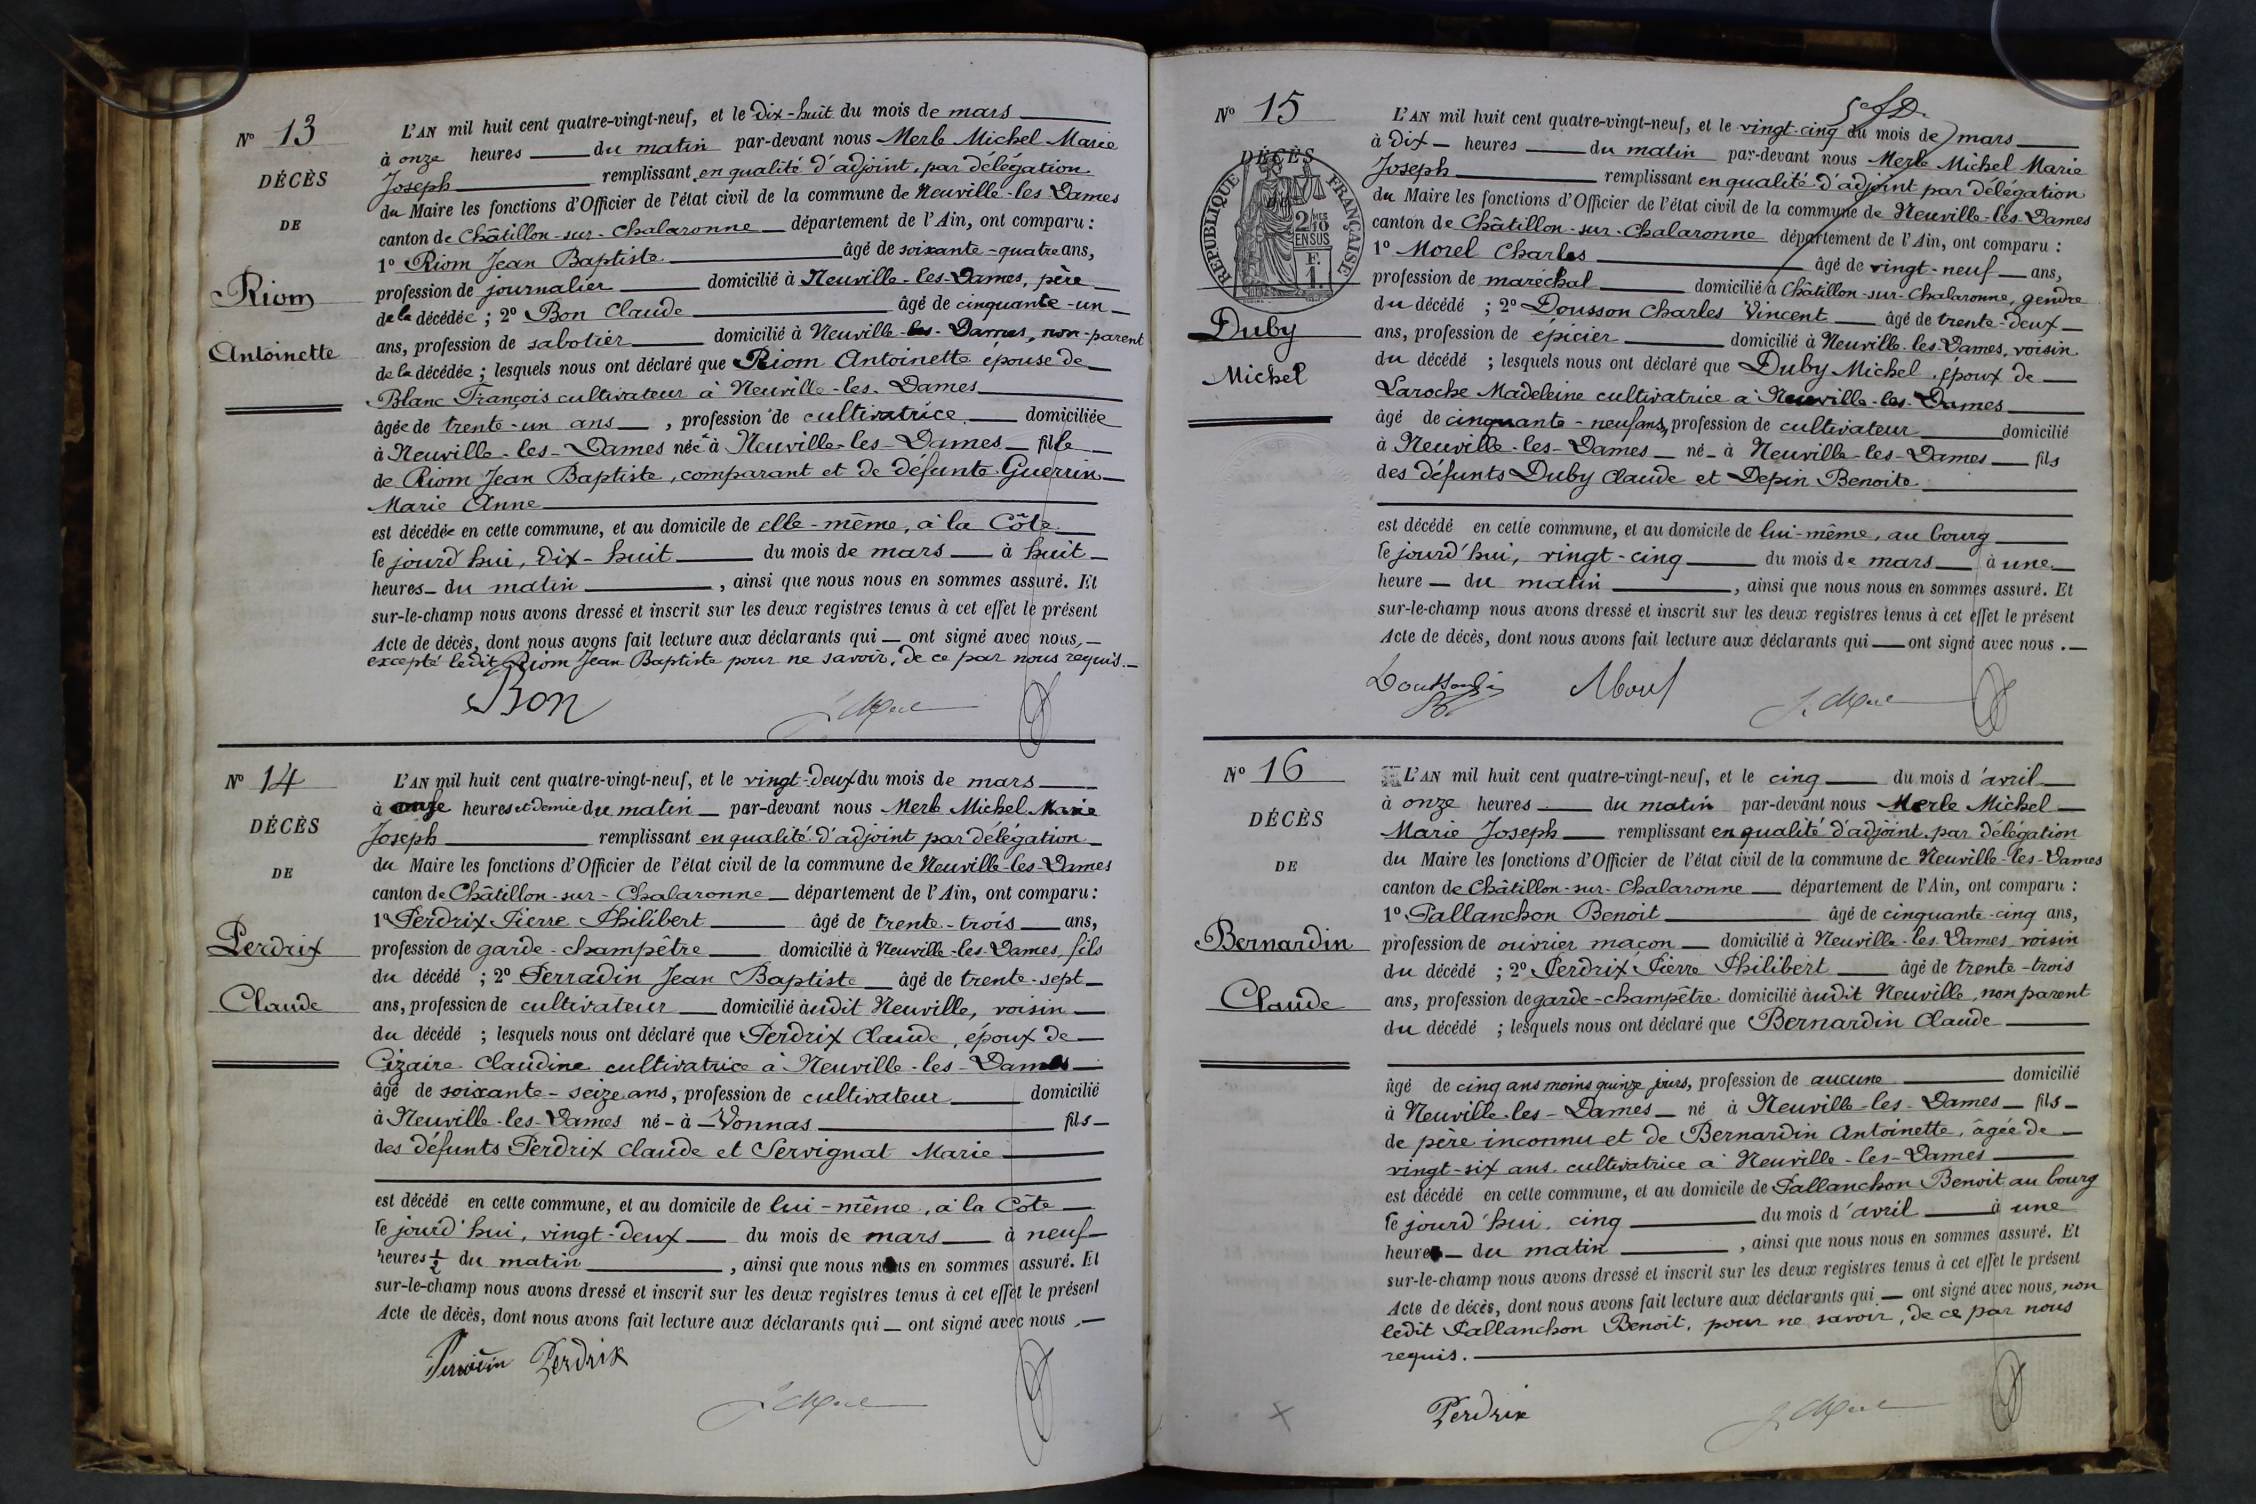 Nº 13
DÉCÈS
DE
Riom
Antoinette
L'AN mil huit cent quatre-vingt-neuf, et le dix-huit du mois de mars
à onze heures du matin par-devant nous Merle Michel Marie
Joseph remplissant en qualité d'adjoint, par délégation
du Maire les fonctions d'Officier de l'état civil de la commune de Neuville-les-Dames
canton de Châtillon-sur-Chalaronne département de l'Ain, ont comparu :
1º Riom Jean Baptiste âgé de soixante-quatre ans,
profession de journalier domicilié à Neuville-les-Dames, père
de la décédée ; 2º Bon Claude âgé de cinquante-un
ans, profession de sabotier domicilié à Neuville-les-Dames, non-parent
de la décédée ; lesquels nous ont déclaré que Riom Antoinette épouse de
Blanc François cultivateur à Neuville-les-Dames
âgée de trente-un ans, profession de cultivatrice domiciliée
à Neuville-les-Dames née à Neuville-les-Dames fille
de Riom Jean Baptiste, comparant et de défunte Guerrin
Marie Anne
est décédée en cette commune, et au domicile de elle-même, à la Côte
le jourd'hui, dix-huit du mois de mars à huit
heures du matin, ainsi que nous nous en sommes assuré. Et
sur-le-champ nous avons dressé et inscrit sur les deux registres tenus à cet effet le présent
Acte de décès, dont nous avons fait lecture aux déclarants qui ont signé avec nous,
excepté ledit Riom Jean Baptiste pour ne savoir, de ce par nous requis.
Bon
Nº 14
DÉCÈS
DE
Perdrix
Claude
L'AN mil huit cent quatre-vingt-neuf, et le vingt-deux du mois de mars
à onze heures et demie du matin par-devant nous Merle Michel Marie
Joseph remplissant en qualité d'adjoint par délégation
du Maire les fonctions d'Officier de l'état civil de la commune de Neuville-les-Dames
canton de Châtillon-sur-Chalaronne département de l'Ain, ont comparu :
1º Perdrix Pierre Philibert âgé de trente-trois ans,
profession de garde-champêtre domicilié à Neuville-les-Dames, fils
du décédé ; 2º Perradin Jean Baptiste âgé de trente-sept
ans, profession de cultivateur domicilié àudit Neuville, voisin
du décédé ; lesquels nous ont déclaré que Perdrix Claude, époux de
Cizaire Claudine cultivatrice à Neuville-les-Dames
âgé de soixante-seize ans, profession de cultivateur domicilié
à Neuville-les-Dames né à Vonnas fils
des défunts Perdrix Claude et Servignat Marie
est décédé en cette commune, et au domicile de lui-même, à la Côte
le jourd'hui, vingt-deux du mois de mars à neuf
heures 1/2 du matin, ainsi que nous nous en sommes assuré. Et
sur-le-champ nous avons dressé et inscrit sur les deux registres tenus à cet effet le présent
Acte de décès, dont nous avons fait lecture aux déclarants qui ont signé avec nous.
Perdrix
Nº 15
DÉCÈS
RÉPUBLIQUE FRANÇAISE
2/10 EN SUS
F. 1.
Duby
Michel
L'AN mil huit cent quatre-vingt-neuf, et le vingt-cinq du mois de mars
à dix heures du matin par-devant nous Merle Michel Marie
Joseph remplissant en qualité d'adjoint par délégation
du Maire les fonctions d'Officier de l'état civil de la commune de Neuville-les-Dames
canton de Châtillon-sur-Chalaronne département de l'Ain, ont comparu :
1º Morel Charles âgé de vingt-neuf ans,
profession de maréchal domicilié à Châtillon-sur-Chalaronne, gendre
du décédé ; 2º Dousson Charles Vincent âgé de trente-deux
ans, profession de épicier domicilié à Neuville-les-Dames, voisin
du décédé ; lesquels nous ont déclaré que Duby Michel, époux de
Laroche Madeleine cultivatrice à Neuville-les-Dames
âgé de cinquante-neuf ans, profession de cultivateur domicilié
à Neuville-les-Dames né à Neuville-les-Dames fils
des défunts Duby Claude et Depin Benoite
est décédé en cette commune, et au domicile de lui-même, au bourg
le jourd'hui, vingt-cinq du mois de mars à une
heure du matin, ainsi que nous nous en sommes assuré. Et
sur-le-champ nous avons dressé et inscrit sur les deux registres tenus à cet effet le présent
Acte de décès, dont nous avons fait lecture aux déclarants qui ont signé avec nous.
Nº 16
DÉCÈS
DE
Bernardin
Claude
L'AN mil huit cent quatre-vingt-neuf, et le cinq du mois d'avril
à onze heures du matin par-devant nous Merle Michel
Marie Joseph remplissant en qualité d'adjoint, par délégation
du Maire les fonctions d'Officier de l'état civil de la commune de Neuville-les-Dames
canton de Châtillon-sur-Chalaronne département de l'Ain, ont comparu :
1º Pallanchon Benoit âgé de cinquante-cinq ans,
profession de ouvrier maçon domicilié à Neuville-les-Dames voisin
du décédé ; 2º Perdrix Pierre Philibert âgé de trente-trois
ans, profession de garde-champêtre domicilié àudit Neuville, non parent
du décédé ; lesquels nous ont déclaré que Bernardin Claude
âgé de cinq ans moins quinze jours, profession de aucune domicilié
à Neuville-les-Dames né à Neuville-les-Dames fils
de père inconnu et de Bernardin Antoinette, âgée de
vingt-six ans, cultivatrice à Neuville-les-Dames
est décédé en cette commune, et au domicile de Pallanchon Benoit au bourg
le jourd'hui, cinq du mois d'avril à une
heure du matin, ainsi que nous nous en sommes assuré. Et
sur-le-champ nous avons dressé et inscrit sur les deux registres tenus à cet effet le présent
Acte de décès, dont nous avons fait lecture aux déclarants qui ont signé avec nous, non
ledit Pallanchon Benoit, pour ne savoir, de ce par nous
requis.
Perdrix